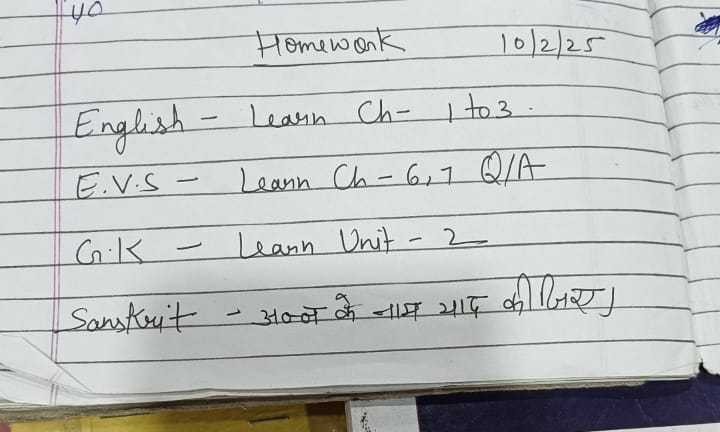 40
Homework 10/2/25
English - Learn Ch- 1 to 3.
E.V.S - Learn Ch - 6, 7 Q/A
G.K - Learn Unit - 2
Sanskrit - अन्न के नाम याद कीजिए।